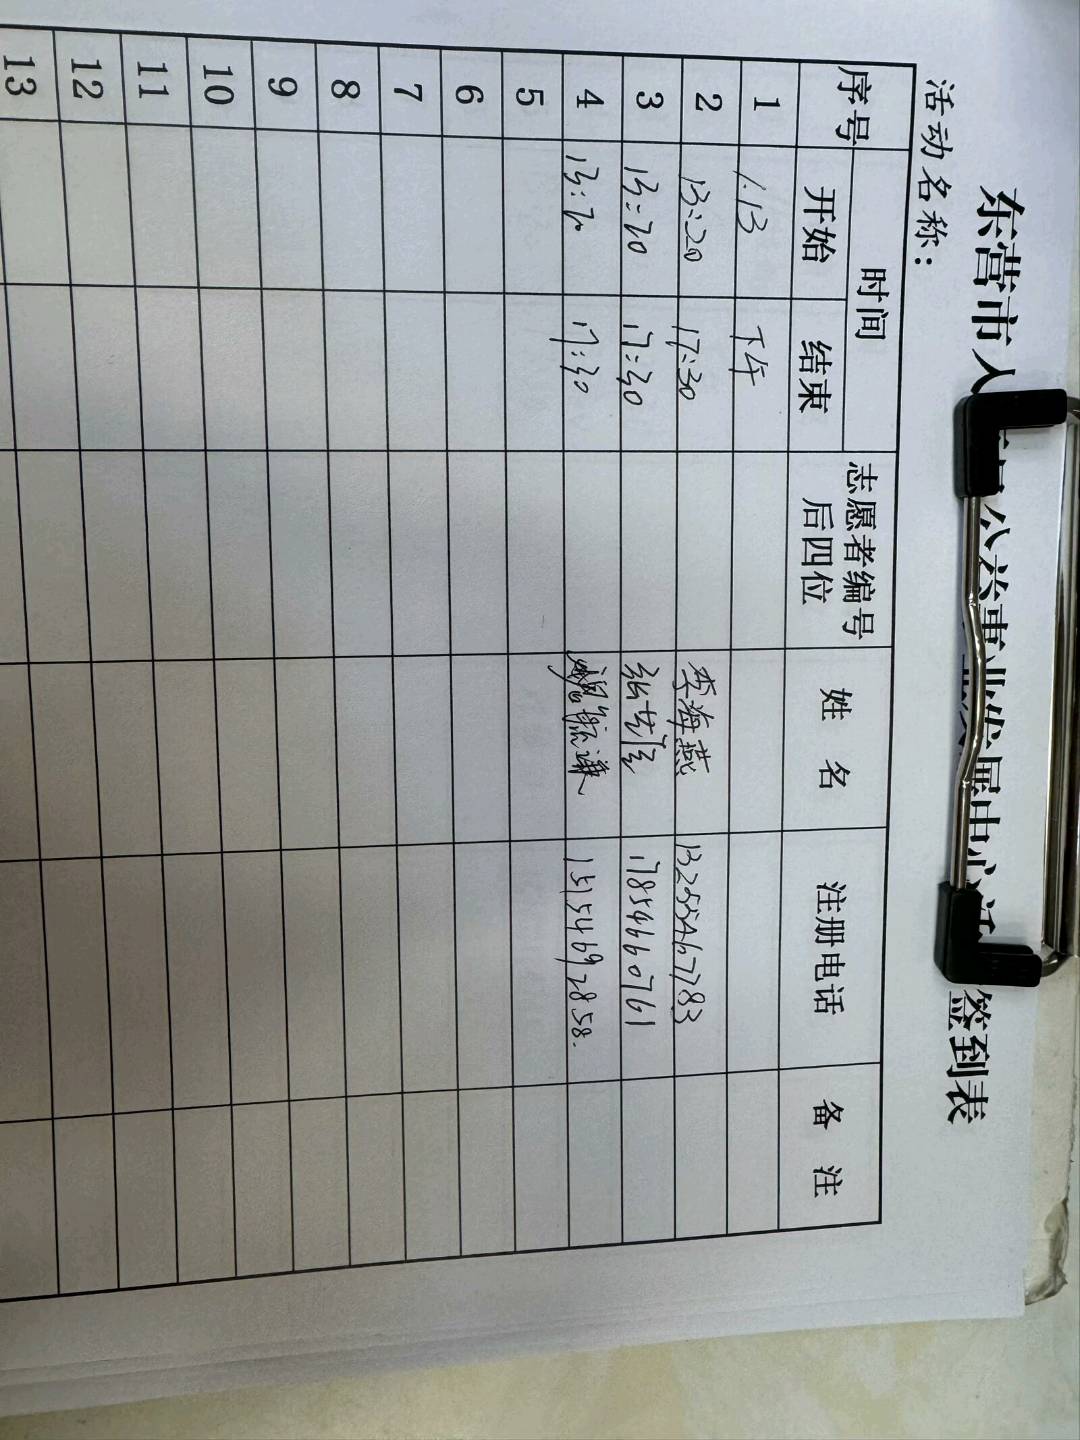 东营市人 公益事业发展中心活 签到表
活动名称：
序号 时间 志愿者编号后四位 姓名 注册电话 备注
开始 结束
1 1.13 下午
2 13:20 17:30 李海燕 13255467783
3 13:20 17:30 17854660761
4 13:20 17:30 15154692858.
5
6
7
8
9
10
11
12
13